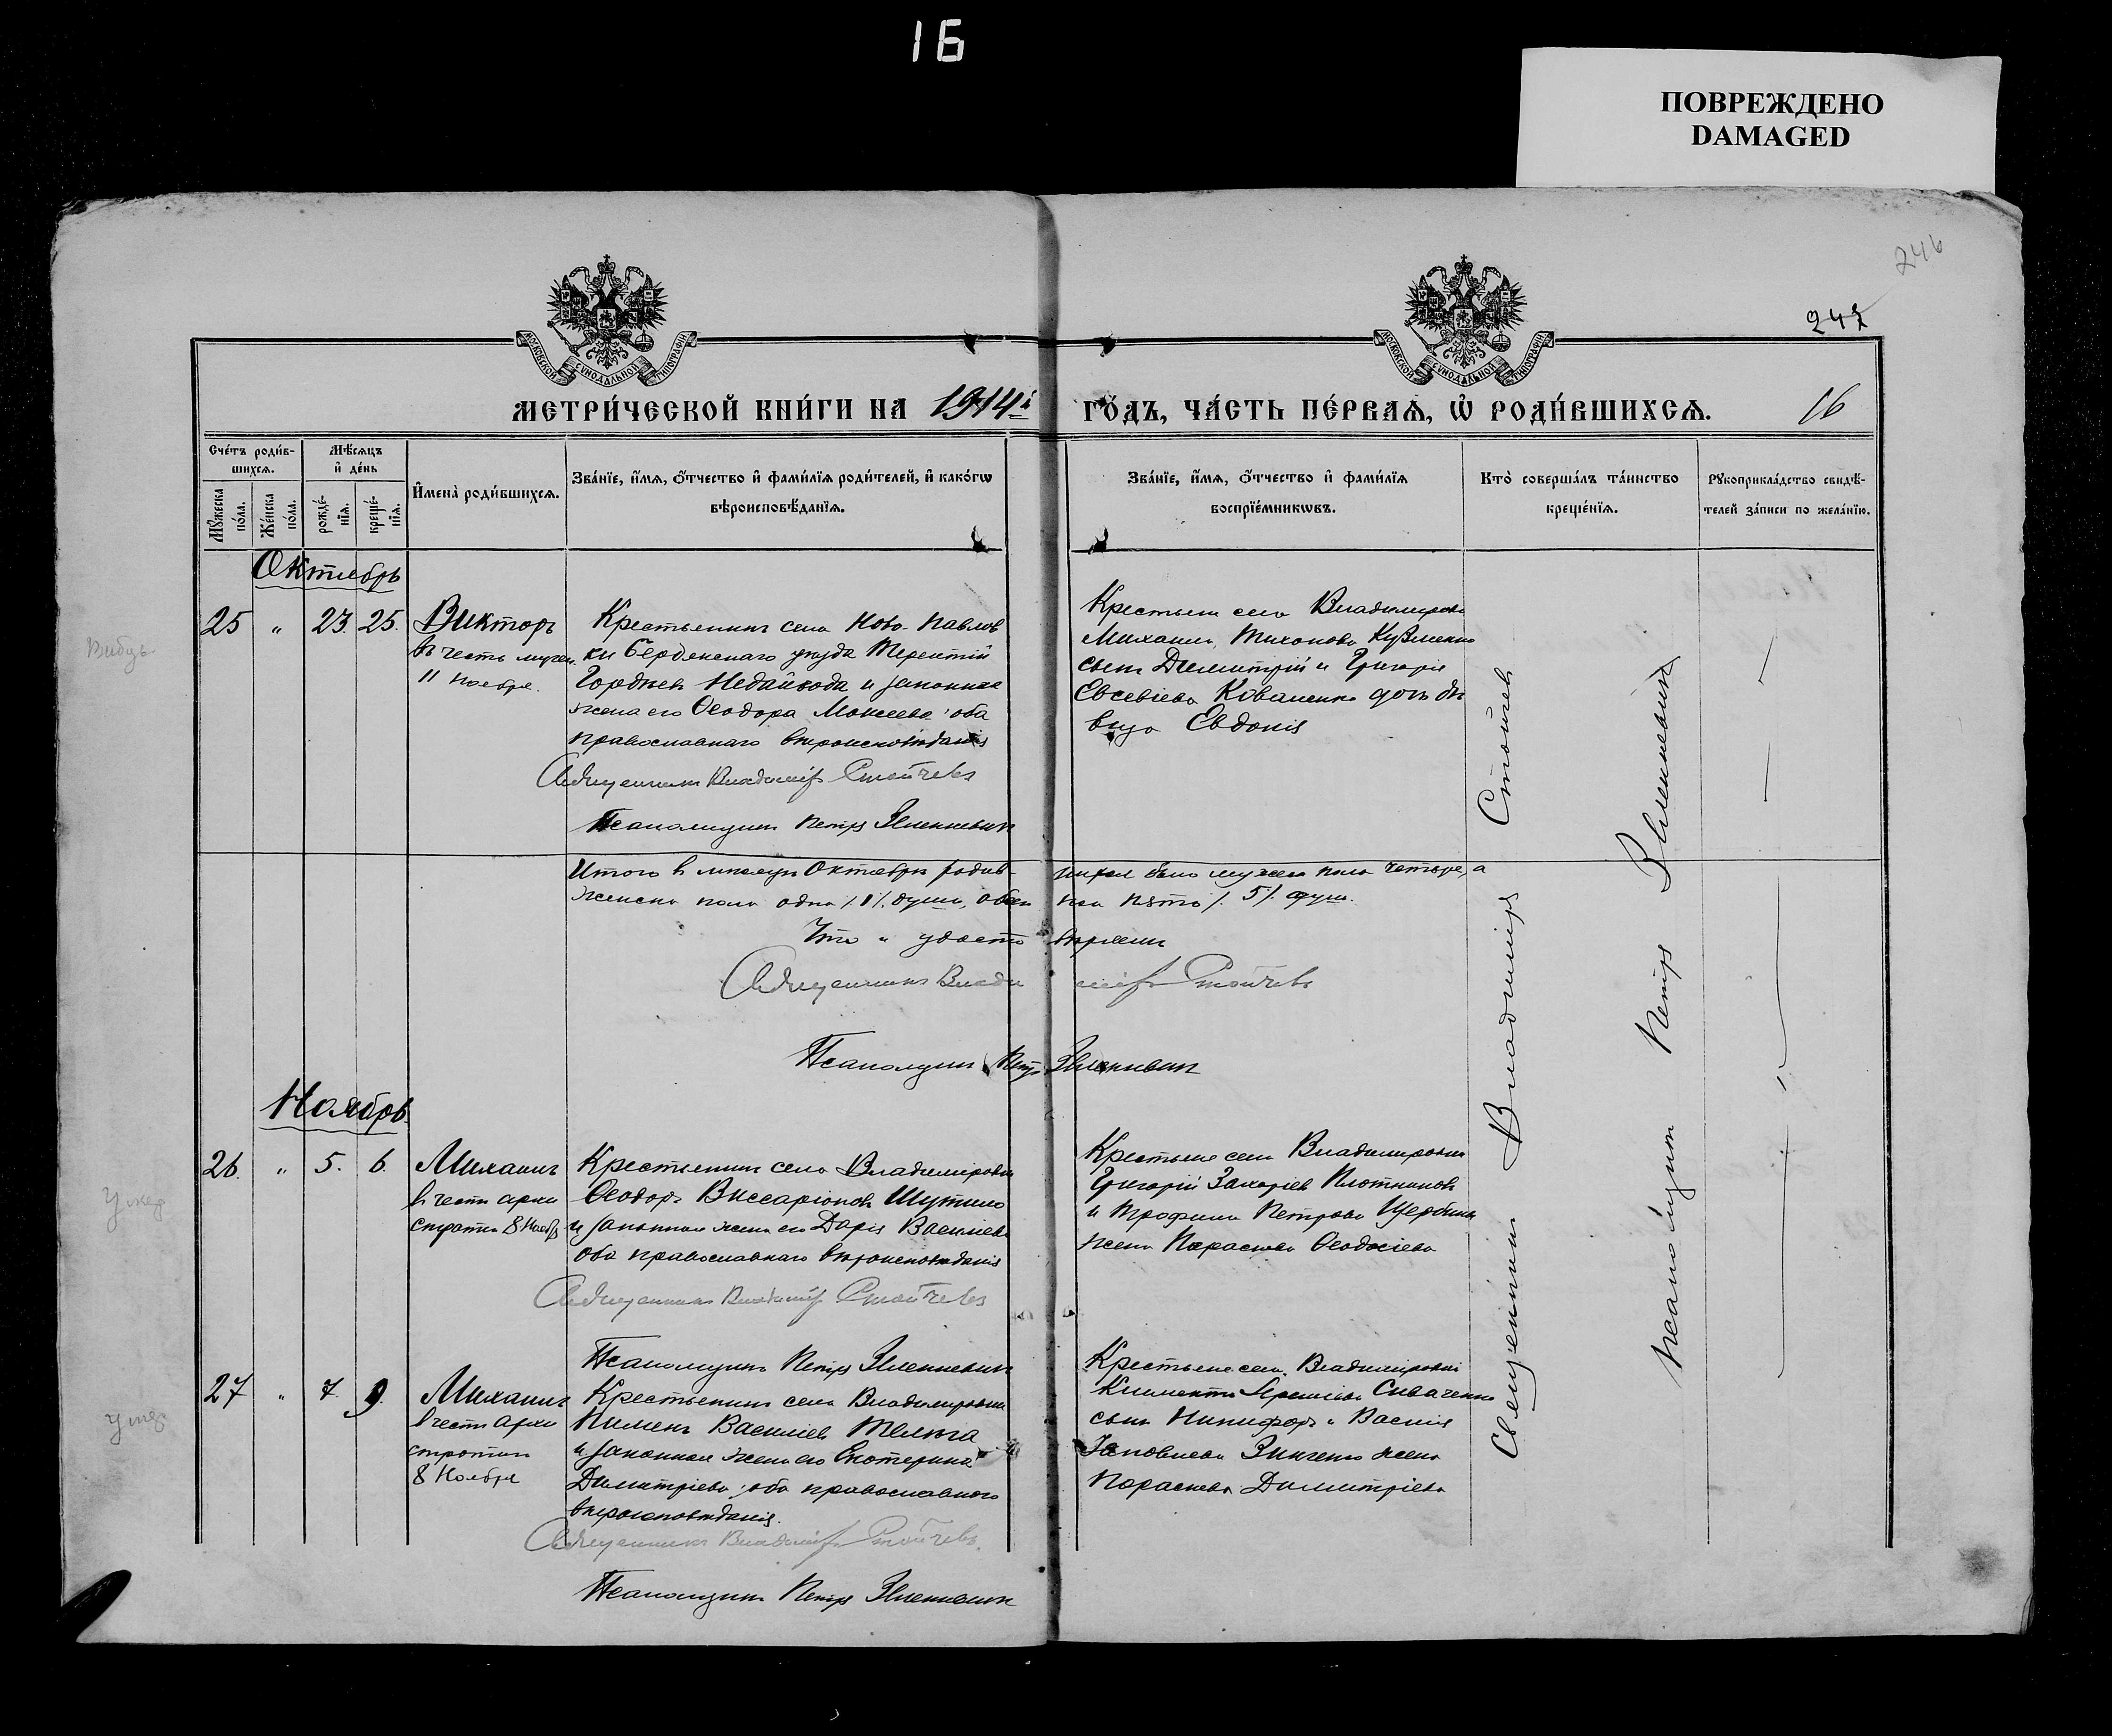 16
ПОВРЕЖДЕНО
DAMAGED
246
247
МОСКОВСКОЙ СУНОДАЛЬНОЙ ТИПОГРАФІИ
МОСКОВСКОЙ СУНОДАЛЬНОЙ ТИПОГРАФІИ
МЕТРИ́ЧЕСКОЙ КНИ́ГИ НА 1914й ГО́ДЪ, ЧА́СТЬ ПЕ́РВАѦ, Ѡ҆ РОДИ́ВШИХСѦ. 16
Сче́тъ роди́в-
шихсѧ.
Мꙋ́жеска по́ла.
Же́нска по́ла.
Мѣ́сѧцъ
и҆ де́нь
рожде́-нїѧ.
креще́-нїѧ.
И҆мена̀ роди́вшихсѧ.
Зва́нїе, и҆́мѧ, ѻ҆́тчество и҆ фами́лїѧ роди́телей, и҆ како́гѡ
вѣроисповѣ́данїѧ.
Зва́нїе, и҆́мѧ, ѻ҆́тчество и҆ фами́лїѧ
воспрїе́мникѡвъ.
Кто̀ соверша́лъ та́инство
креще́нїѧ.
Рꙋкоприкла́дство свидѣ́-
телей за́писи по жела́нїю.
Октябрь
25 " 23. 25. Викторъ
въ честь мучен.
11 ноября.
Крестьянинъ села Ново-Павлов
ки Бердянскаго уѣзда Терентій
Гордѣевъ Недайвода и законная
жена его Ѳеодора Моисеева оба
православнаго вѣроисповѣданія
Священникъ Владиміръ Стойчевъ
Псаломщикъ Петръ Зѣленкевичъ
Крестьяне села Владимировки
Михаила Тихонова Кузьменко
сынъ Димитрій и Григорія
Евсевіева Коваленко дочь дѣ
вица Евдокія
Итого въ мѣсяцѣ Октябрѣ родив- шихся было мужеска пола четыре, а
женска пола одна /.1/. душа, обоего пола пять /.5/. душъ.
Что и удосто вѣряемъ
Священникъ Влади міръ Стойчевъ
Псаломщикъ Петръ Зѣленкевичъ
Ноябрь.
26. " 5. 6. Михаилъ
въ честь архи
стратига 8 Нояб.
Крестьянинъ села Владимировки
Ѳеодоръ Виссаріоновъ Шутько
и законная жена его Дарія Васильева
оба православнаго вѣроисповѣданія
Священникъ Владиміръ Стойчевъ
Псаломщикъ Петръ Зѣленкевичъ
Крестьяне села Владимировки
Григорій Захаріевъ Плотниковъ
и Трофима Петрова Щербины
жена Параскева Ѳеодосіева
27 " 7. 9. Михаилъ
въ честь Архи
стратига
8 Ноября
Крестьянинъ села Владимировки
Пименъ Василіевъ Телюга
и законная жена его Екатерина
Димитріева, оба православнаго
вѣроисповѣданія.
Священникъ Владиміръ Стойчевъ.
Псаломщикъ Петръ Зѣленкевичъ
Крестьяне села Владимировки
Климента Сиваченко
сынъ Никифоръ и Василія
Зинченко жена
Параскева Димитріева
Священникъ Владиміръ Стойчевъ
Псаломщикъ Петръ Зѣленкевичъ
Умер
Умер